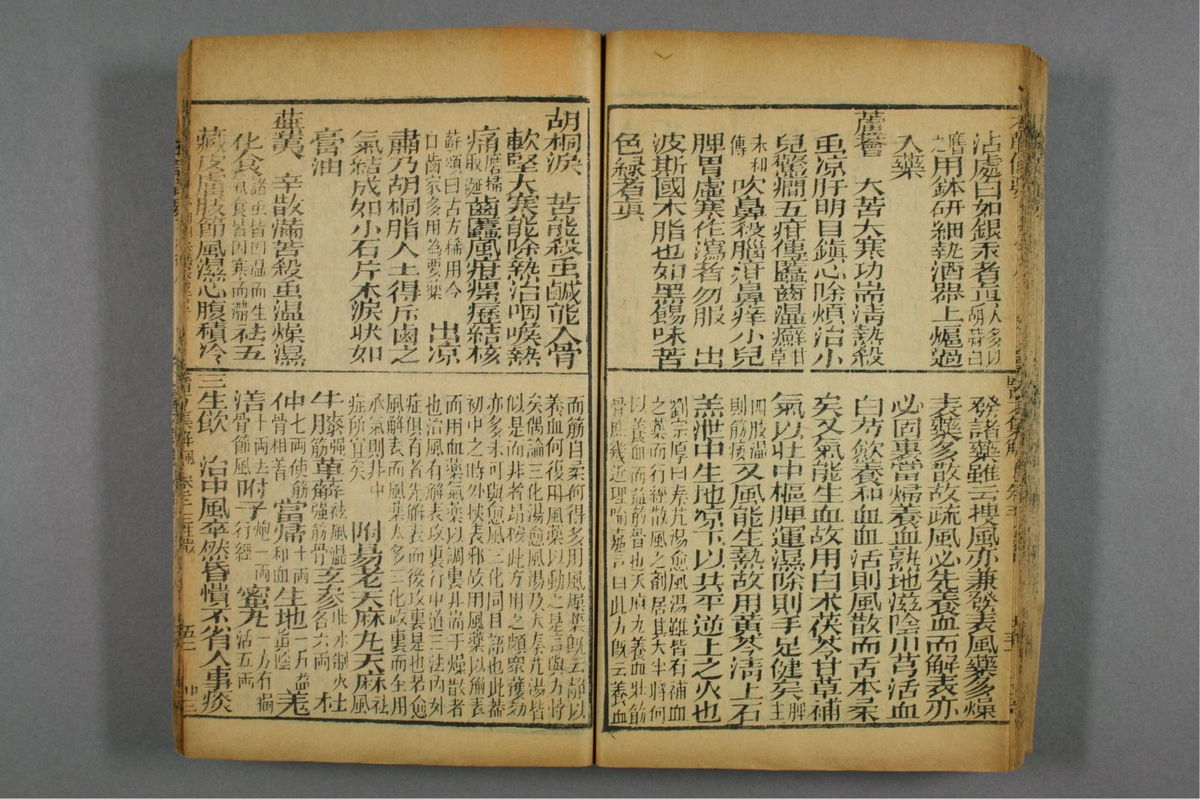 沾處白如銀汞者真人多以胡麻白
磨之用鉢研細熱酒器上煏過
入藥
蘆薈 大苦大寒功耑清熱殺
虫凉肝明目鎮心除煩治小
兒驚癇五疳傳䘌齒温癬甘草
末和傳吹鼻殺腦疳鼻痒小兒
脾胃虛寒作瀉者勿服 出
波斯國木脂也如黑餳味苦
色緑者真
胡桐淚 苦能殺虫鹹能入骨
軟堅大寒能除熱治咽喉熱
痛磨掃取涎齒䘌風疳瘰癧結核
蘇頌曰古方稀用今口齒家多用為要藥 出凉
肅乃胡桐脂入土得斥鹵之
氣結成如小石片木淚狀如
膏油
蕪荑 辛散滿苦殺虫温燥濕
化食諸虫皆因濕而生氣食皆因寒而滯祛五
藏皮膚肢節風濕心腹積冷
發諸藥雖云搜風亦兼發表風藥多燥
表藥多散故疏風必先養血而解表亦
必固裏當歸養血熟地滋陰川芎活血
白芍歛養和血血活則風散而舌本柔
矣又氣能生血故用白术茯苓甘草補
氣以壯中樞脾運濕除則手足健矣脾主
四肢濕則筋痿又風能生熱故用黃芩清上石
羔泄中生地凉下以共平逆上之火也
劉宗厚曰秦艽愈風湯雖皆有補血
之藥而行經散風之劑居其大半將何
以養血而益筋骨也天麻丸養血壯筋
骨庶幾近理喻嘉言曰此方既云養血
而筋自柔何得多用風燥藥既云靜以
養血何復用風藥以動之是言與方悖
矣偶論三化湯愈風湯及大秦艽湯皆
似是而非者昂按此方用之頗衆獲効
亦多未可與愈風三化同日語也此蓋
初中之時外挾表邪故用風藥以觧表
而用血藥氣藥以調裏非耑于燥散者
也治風有解表攻裏行中道三法內外
症俱有者先解表而後攻裏是也若愈
風解表而風藥太多三化攻裏而全用
承氣則非中症所宜矣 附易老天麻丸天麻祛風
牛膝强筋萆薢祛風濕强筋骨玄參壯水制火各六兩杜
仲七兩使筋骨相着當歸十兩和血生地一斤益陰羌
活十兩去骨節風附子炮一兩行經蜜丸一方有獨活五兩
三生飲 治中風卒然昏憒不省人事痰